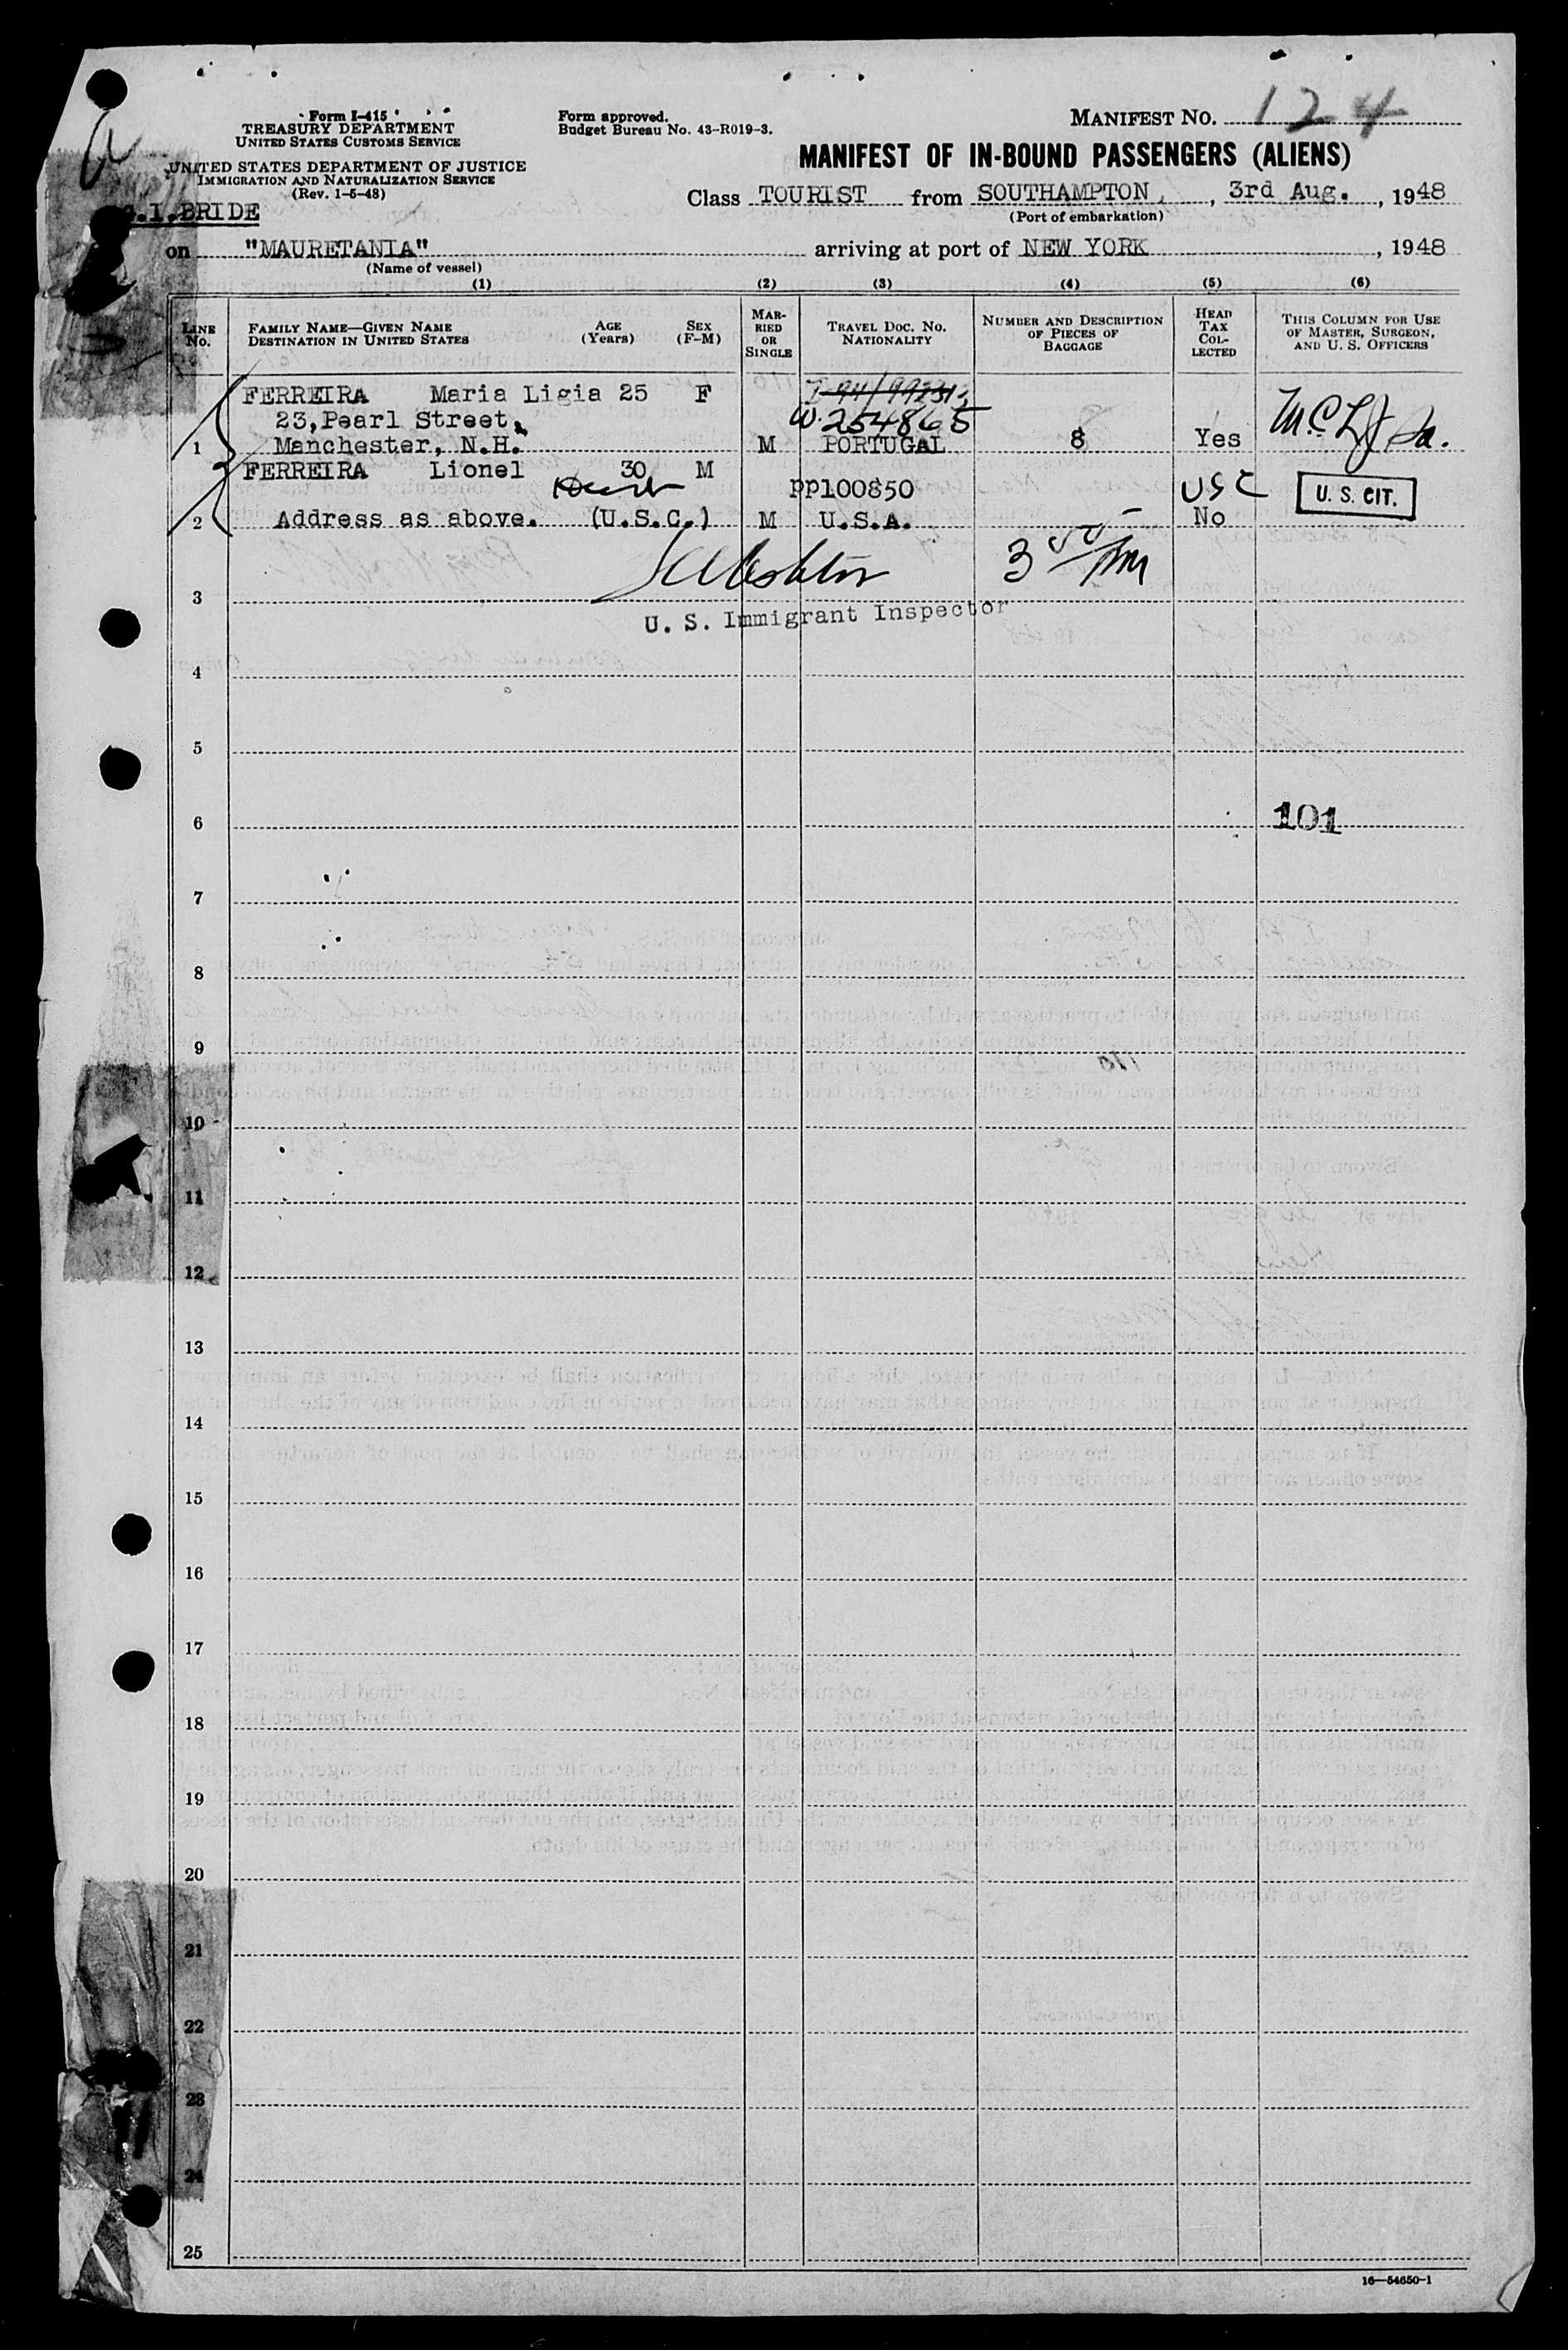 Form I-415
TREASURY DEPARTMENT
UNITED STATES CUSTOMS SERVICE
UNITED STATES DEPARTMENT OF JUSTICE
IMMIGRATION AND NATURALIZATION SERVICE
(Rev. 1-5-48)
G.I.BRIDE
Form approved.
Budget Bureau No. 43-R019-3.
MANIFEST NO. 124
MANIFEST OF IN-BOUND PASSENGERS (ALIENS)
Class TOURIST from SOUTHAMPTON, , 3rd Aug. , 1948
(Port of embarkation)
on "MAURETANIA" arriving at port of NEW YORK , 1948
(Name of vessel)
(1) (2) (3) (4) (5) (6)
LINE No.
FAMILY NAME—GIVEN NAME
DESTINATION IN UNITED STATES
AGE (Years)
SEX (F-M)
MARRIED OR SINGLE
TRAVEL DOC. NO.
NATIONALITY
NUMBER AND DESCRIPTION OF PIECES OF BAGGAGE
HEAD TAX COLLECTED
THIS COLUMN FOR USE OF MASTER, SURGEON, AND U. S. OFFICERS
FERREIRA Maria Ligia 25 F
23,Pearl Street, W.254865
1 Manchester, N.H. M PORTUGAL 8 Yes
FERREIRA Lionel 30 M
PP100850 USC U. S. CIT.
2 Address as above. (U.S.C.) M U.S.A. No
3
U. S. Immigrant Inspector
4
5
6 101
7
8
9
10
11
12
13
14
15
16
17
18
19
20
21
22
23
24
25
16—54650-1